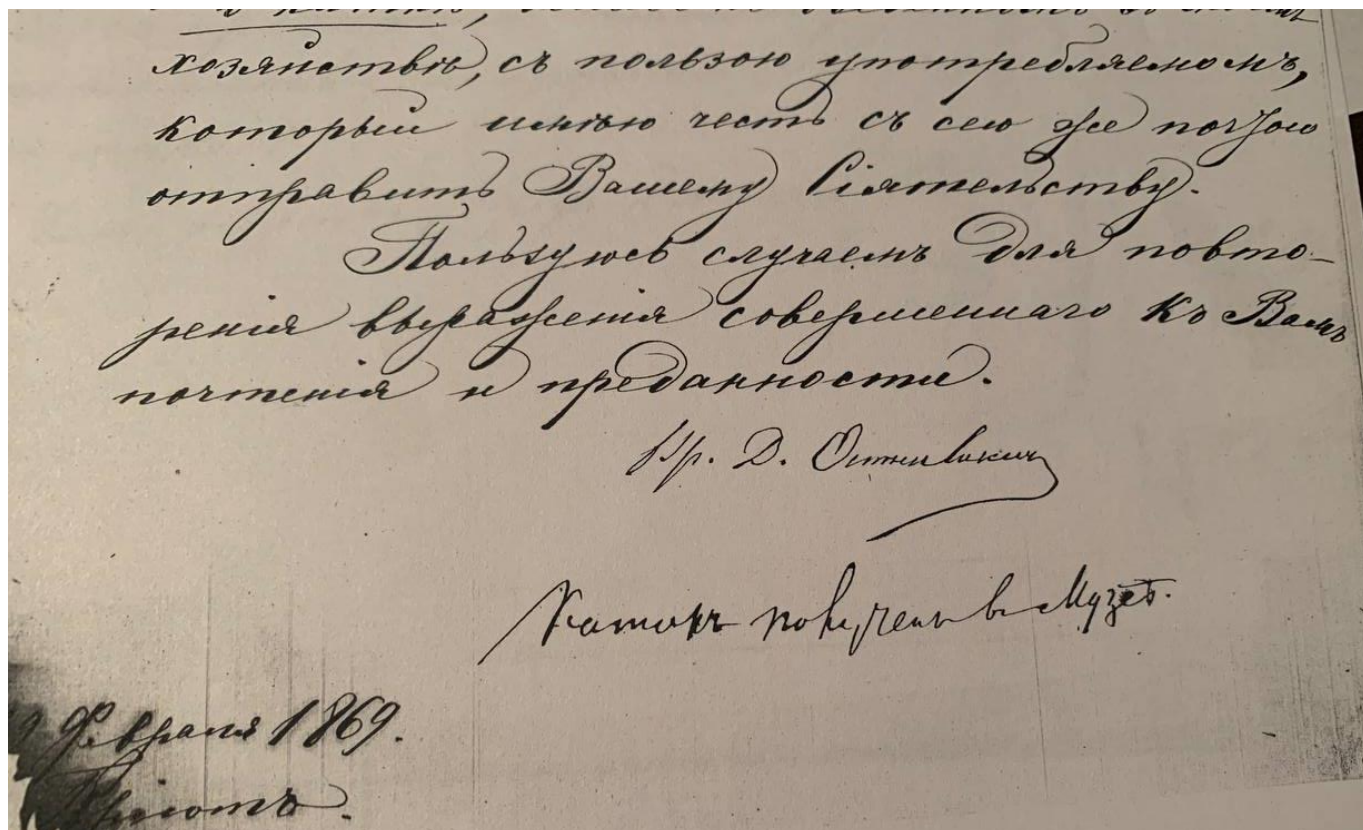 хозяйствѣ, съ пользою употребляемомъ,
который имѣю честь съ сею же почтою
отправить Вашему Сіятельству.
Пользуюсь случаемъ для повто-
ренія выраженія совершеннаго къ Вамъ
почтенія и преданности.
Гр. Д.
Катокъ полученъ въ Музеѣ.
Февраля 1869.